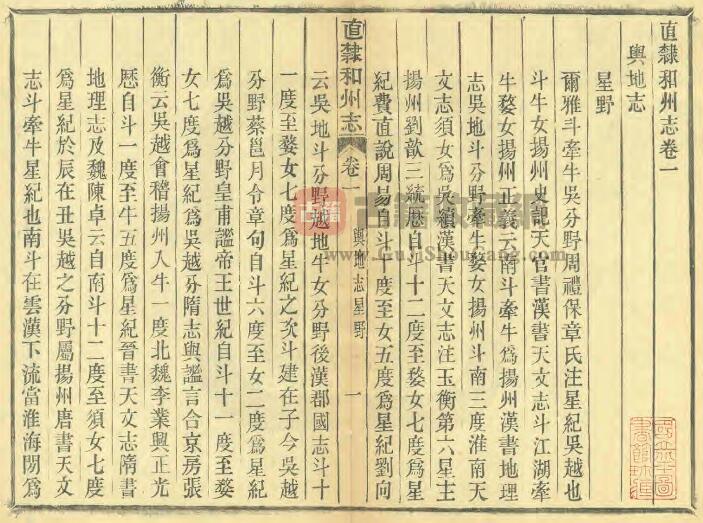 直隸和州志卷一
輿地志
星野
爾雅斗牽牛吳分野周禮保章氏注星紀吳越也
斗牛女揚州史記天官書漢書天文志斗江湖牽
牛婺女揚州正義云南斗牽牛爲揚州漢書地理
志吳地斗分野牽牛婺女揚州斗南三度淮南天
文志須女爲吳續漢書天文志注玉衡第六星主
揚州劉歆三統厯自斗十二度至婺女七度爲星
紀費直說周易自斗十度至女五度爲星紀劉向
直隸和州志 卷一 輿地志星野 一
云吳地斗分野越地牛女分野後漢郡國志斗十
一度至婺女七度爲星紀之次斗建在子今吳越
分野蔡邕月令章句自斗六度至女二度爲星紀
爲吳越分野皇甫謐帝王世紀自斗十一度至婺
女七度爲星紀爲吳越分隋志與謐言合京房張
衡云吳越會稽揚州入牛一度北魏李業興正光
厯自斗一度至牛五度爲星紀晉書天文志隋書
地理志及魏陳卓云自南斗十二度至須女七度
爲星紀於辰在丑吳越之分野屬揚州唐書天文
志斗牽牛星紀也南斗在雲漢下流當淮海閒爲
古籍
GujiShuCang.com